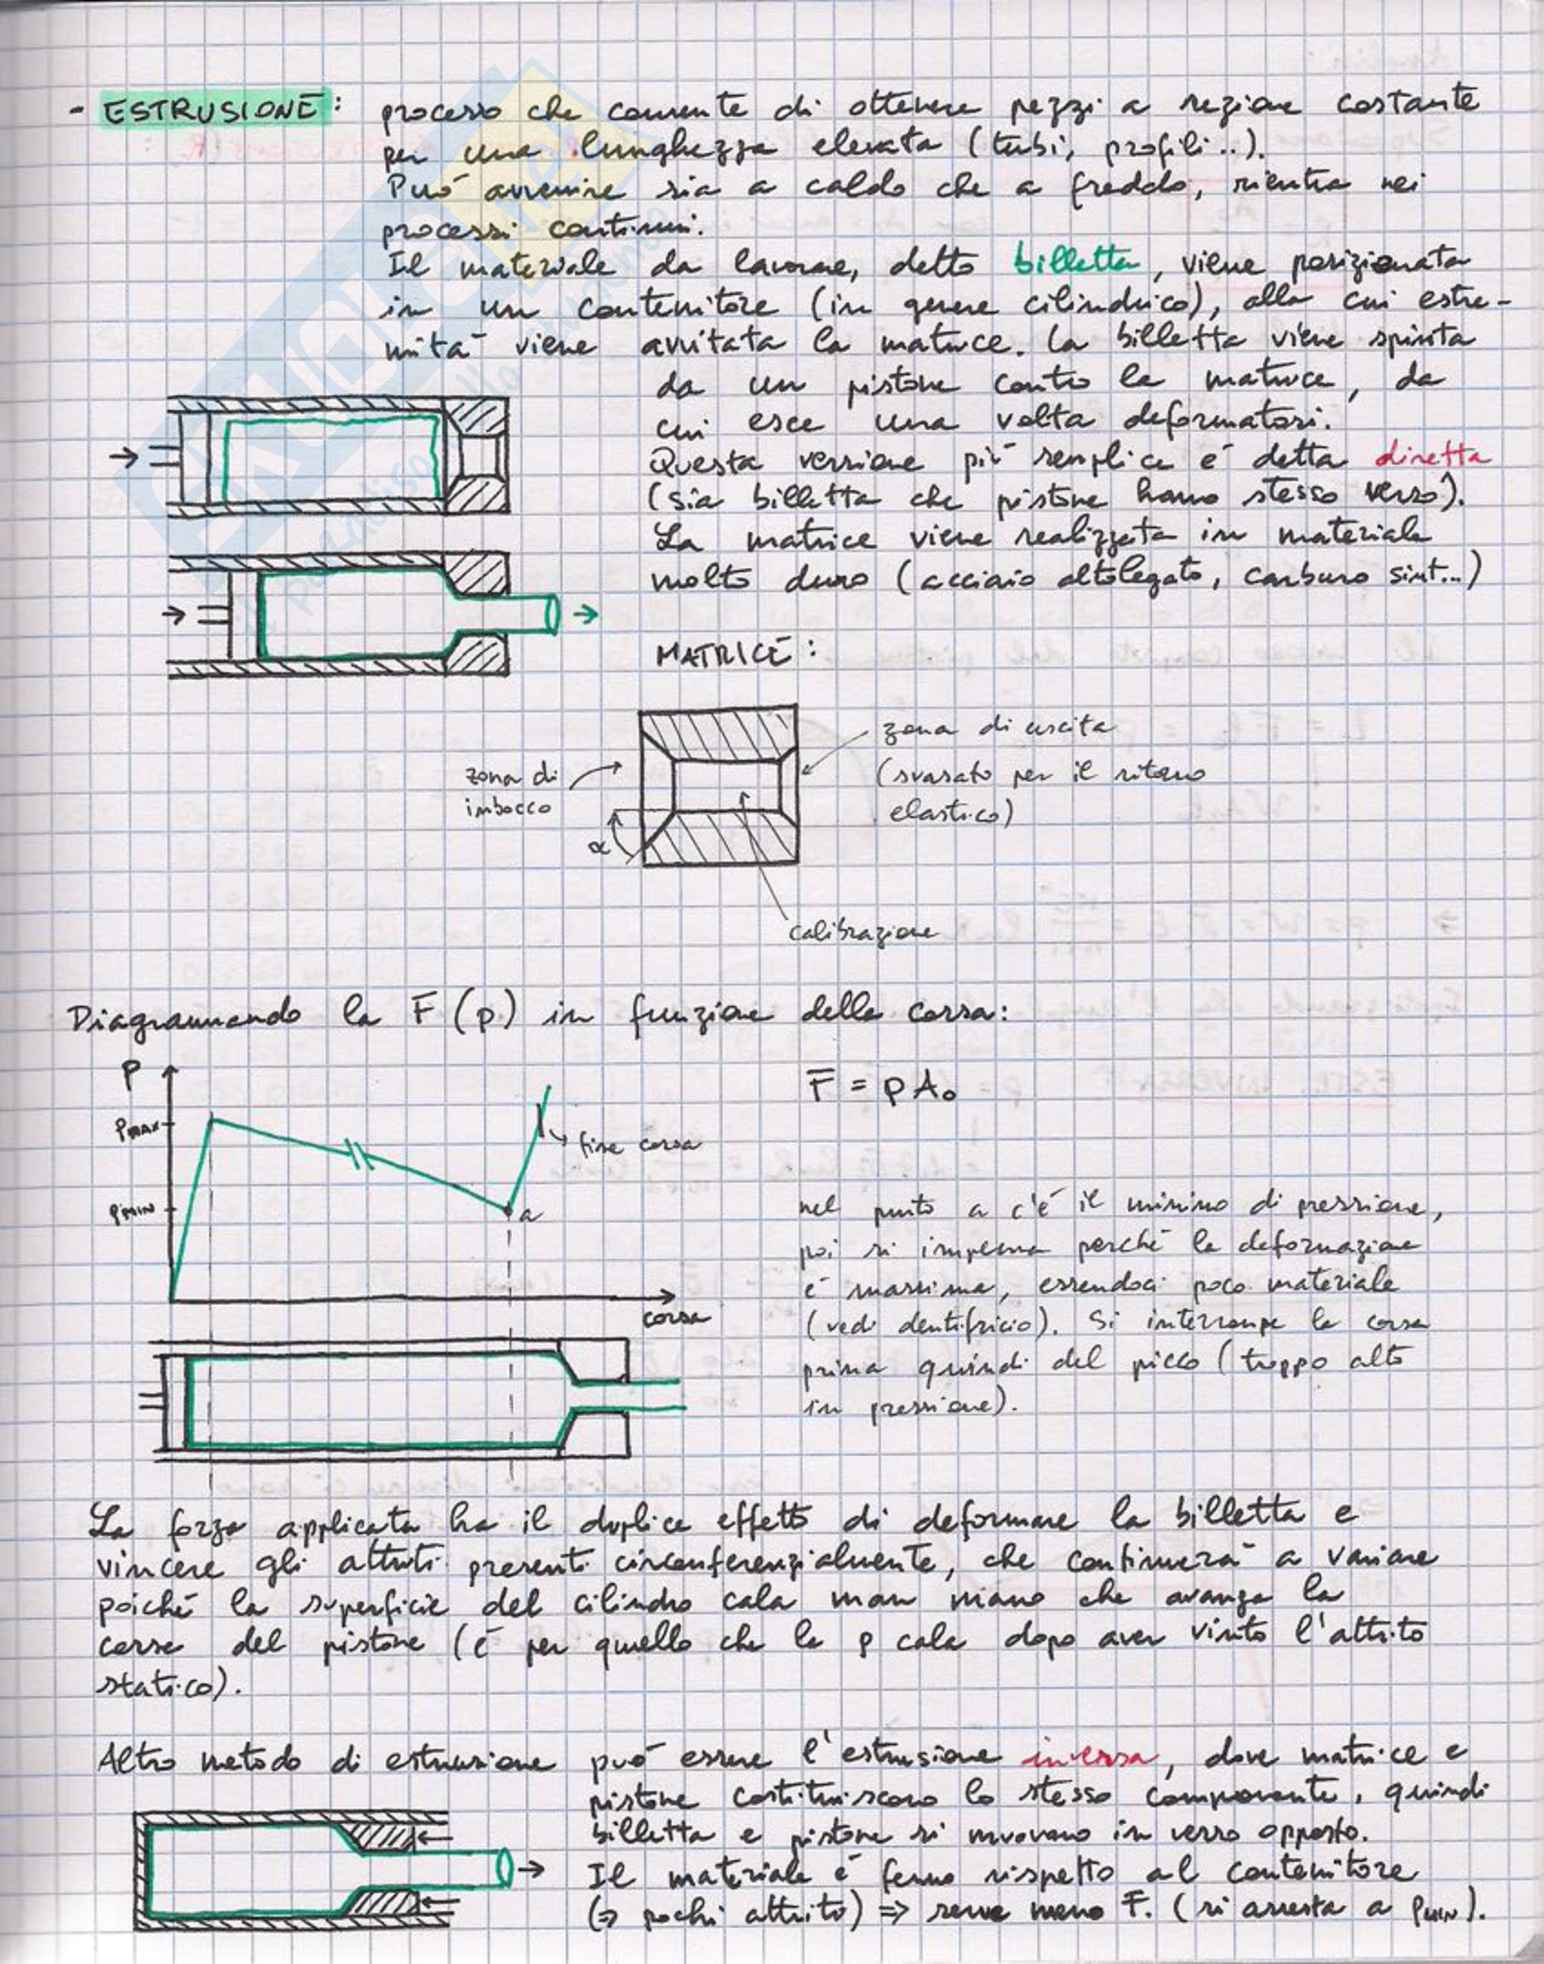 - ESTRUSIONE: processo che consente di ottenere pezzi a sezione costante
per una lunghezza elevata (tubi, profili..).
Può avvenire sia a caldo che a freddo, rientra nei
processi continui.
Il materiale da lavorare, detto billetta, viene posizionata
in un contenitore (in genere cilindrico), alla cui estre-
mità viene avvitata la matrice. La billetta viene spinta
da un pistone contro la matrice, da
cui esce una volta deformatasi.
Questa versione più semplice è detta diretta
(sia billetta che pistone hanno stesso verso).
La matrice viene realizzata in materiale
molto duro (acciaio altolegato, carburo sint...)
MATRICE:
zona di
imbocco
zona di uscita
(svasato per il ritorno
elastico)
α
calibrazione
Diagrammando la F (p) in funzione della corsa:
P
PMAX
PMIN
a
fine corsa
corsa
F = p A₀
nel punto a c'è il minimo di pressione,
poi si impenna perché la deformazione
è massima, essendoci poco materiale
(vedi dentifricio). Si interrompe la corsa
prima quindi del picco (troppo alto
in pressione).
La forza applicata ha il duplice effetto di deformare la billetta e
vincere gli attriti presenti circonferenzialmente, che continuerà a variare
poiché la superficie del cilindro cala man mano che avanza la
corsa del pistone (è per quello che la p cala dopo aver vinto l'attrito
statico).
Altro metodo di estrusione può essere l'estrusione inversa, dove matrice e
pistone costituiscono lo stesso componente, quindi
billetta e pistone si muovono in verso opposto.
Il materiale è fermo rispetto al contenitore
(⇒ pochi attriti) ⇒ serve meno F. (si arresta a PMIN).